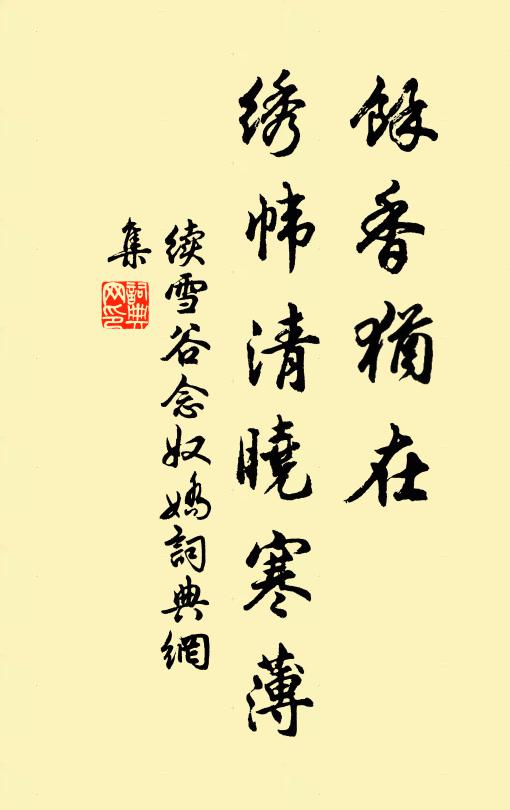 餘香猶在
绣帏清曉寒薄
续雪谷念奴嬌詞典網
集
詞典
网印